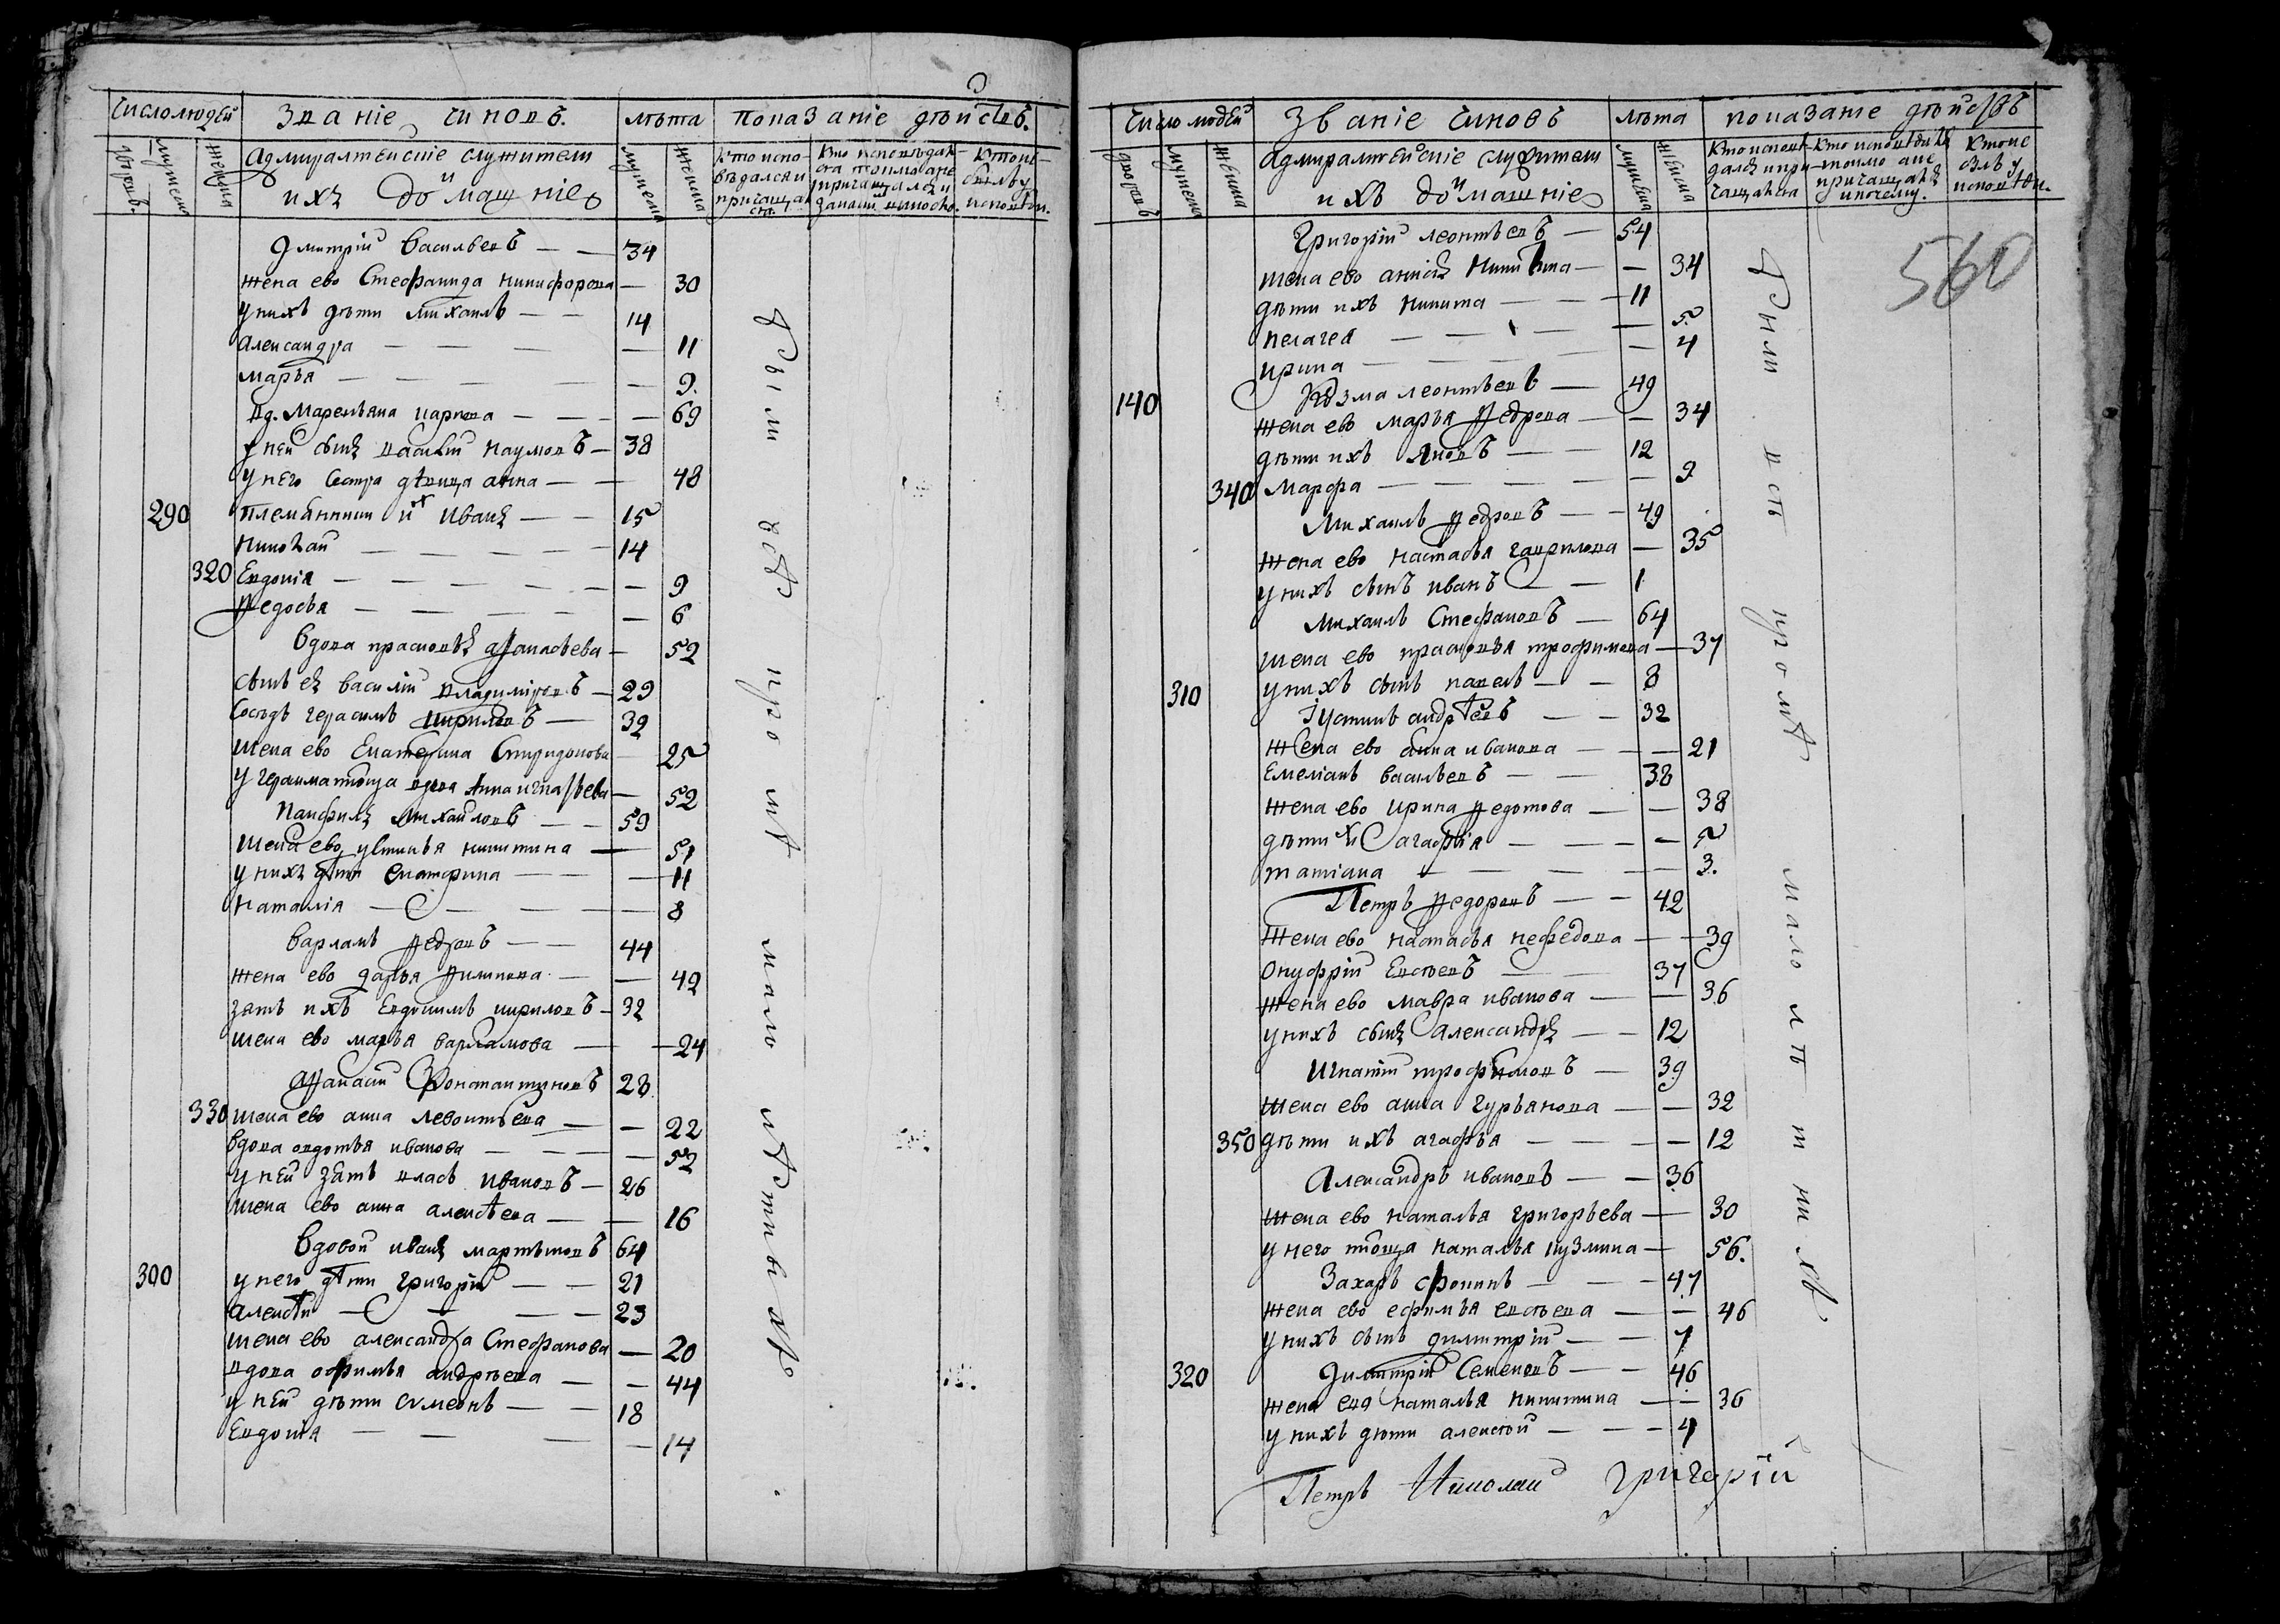 число людей
званіе чиновъ.
лѣта
показаніе дѣйствъ.
дворовъ.
мужеска
женска
адмиралтейскіе служители
и
ихъ домашніе
мужеска
женска
кто испо-
вѣдался и
причаща
ся.
кто исповѣдал-
ся токмо а не
причащался и
кто не
былъ у
исповѣди.
Дмитрій Васильевъ — — 34
жена ево Стефанида никифорова — 30
у нихъ дѣти михаилъ — — 14
александра — — — — 11
марья — — — — — 9.
вд. Маремьяна карпова — — — 69
у ней сынъ василій наумовъ — 38
у него сестра дѣвица анна — — 48
290 племянники их иванъ — — 15
николай — — — — — 14
320 Евдокія — — — — — 9
Федосья — — — — — 6
вдова прасковья афанасьева — 52
сынъ ея василій владиміровъ — 29
Сосѣдъ герасимъ кириловъ — 32
жена ево Екатерина Спиридонова — 25
у герасима теща вдова Анна игнатьева — 52
Панфилъ михайловъ — — 59
жена ево устинья никитина — 51
у нихъ дѣти екатерина — — — 11
наталія — — — — 8
варламъ федоровъ — — 44
жена ево дарья филипова — — 42
зять ихъ Евдокимъ кириловъ — 32
жена ево марья варламова — — 24
афанасій Константиновъ 28
330 жена ево анна Левонтьева — — 22
вдова авдотья иванова — — — 52
у ней зять власъ ивановъ — 26
жена ево анна алексѣева — — 16
вдовой иванъ мартыновъ 64
300 у него дѣти григорій — — 21
алексѣй — — — — 23
жена ево александра Стефанова — 20
вдова офимья андрѣева — — 44
у ней дѣти симеонъ — — 18
Евдокія — — — — 14
были
у св
про мѣ
мало лѣтны хъ
число людей
званіе чиновъ
лѣта
показаніе дѣйствъ
дворовъ
мужеска
женска
адмиралтейскіе служители
и
ихъ домашніе
мужеска
женска
кто исповѣ-
дался и при-
чащался
кто исповѣдался
токмо а не
причащался
и почему.
кто не
былъ у
исповѣди.
560
Григорій леонтьевъ — 54
жена ево анисья никитина — — 34
дѣти ихъ никита — — — 11
пелагея — — — — 5
ирина — — — — 4
140 Козма леонтьевъ — 49
жена ево марья федорова — — 34
дѣти ихъ яковъ — — 12
340 марфа — — — — — 9
михаилъ федоровъ — — 49
жена ево настасья гаврилова — 35
у нихъ сынъ иванъ — — 1
михаилъ Стефановъ — 64
жена ево прасковья трофимова — 37
310 у нихъ сынъ павелъ — — 8
Іустинъ андрѣевъ — — 32
жена ево анна иванова — — — 21
Емеліанъ васильевъ — — 38
жена ево ирина федотова — — 38
дѣти их агафія — — — — 5
татіана — — — — — 3.
Петръ федоровъ — — 42
жена ево настасья нефедова — — 39
Онуфрій Евсѣевъ — — 37
жена ево мавра иванова — — 36
у нихъ сынъ александръ — — 12
Игнатій трофимовъ — 39
жена ево анна гурьянова — — 32
350 дѣти ихъ агафья — — — — 12
Александръ ивановъ — — 36
жена ево наталья григорьева — 30
у него теща наталья кузмина — 56.
Захаръ фокинъ — — — 47
жена ево ефимья евсѣева — — 46
у нихъ сынъ димитрій — — 7
320 Димитрій Семеновъ — — 46
жена ево наталья никитина — — 36
у нихъ дѣти алексѣй — — — 4
были
всѣ
про мѣ
мало лѣт ни хъ
Петръ Николаи григорій